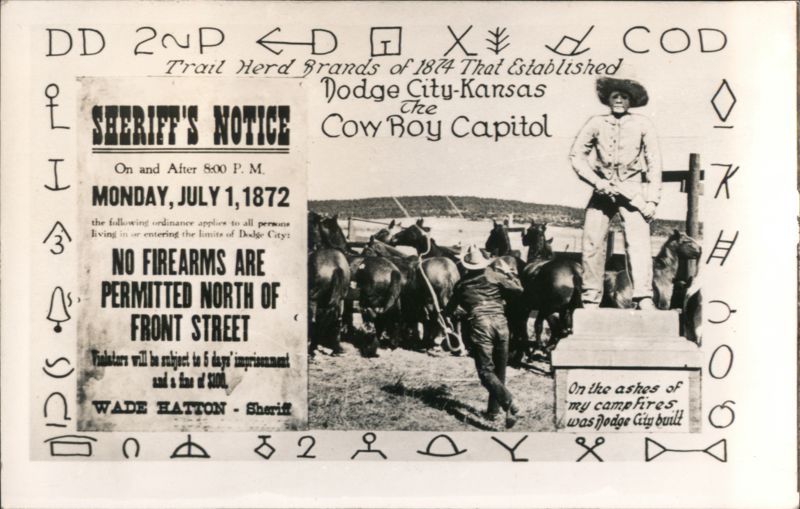 DD 2~P D T X COD
Trail Herd Brands of 1874 That Established
Dodge City-Kansas
The
Cow Boy Capitol
SHERIFF'S NOTICE
On and After 8:00 P. M.
MONDAY, JULY 1, 1872
the following ordinance applies to all persons
living in or entering the limits of Dodge City:
NO FIREARMS ARE
PERMITTED NORTH OF
FRONT STREET
Violators will be subject to 5 days' imprisonment
and a fine of $100.
WADE HATTON - Sheriff
On the ashes of
my campfires
was Dodge City built